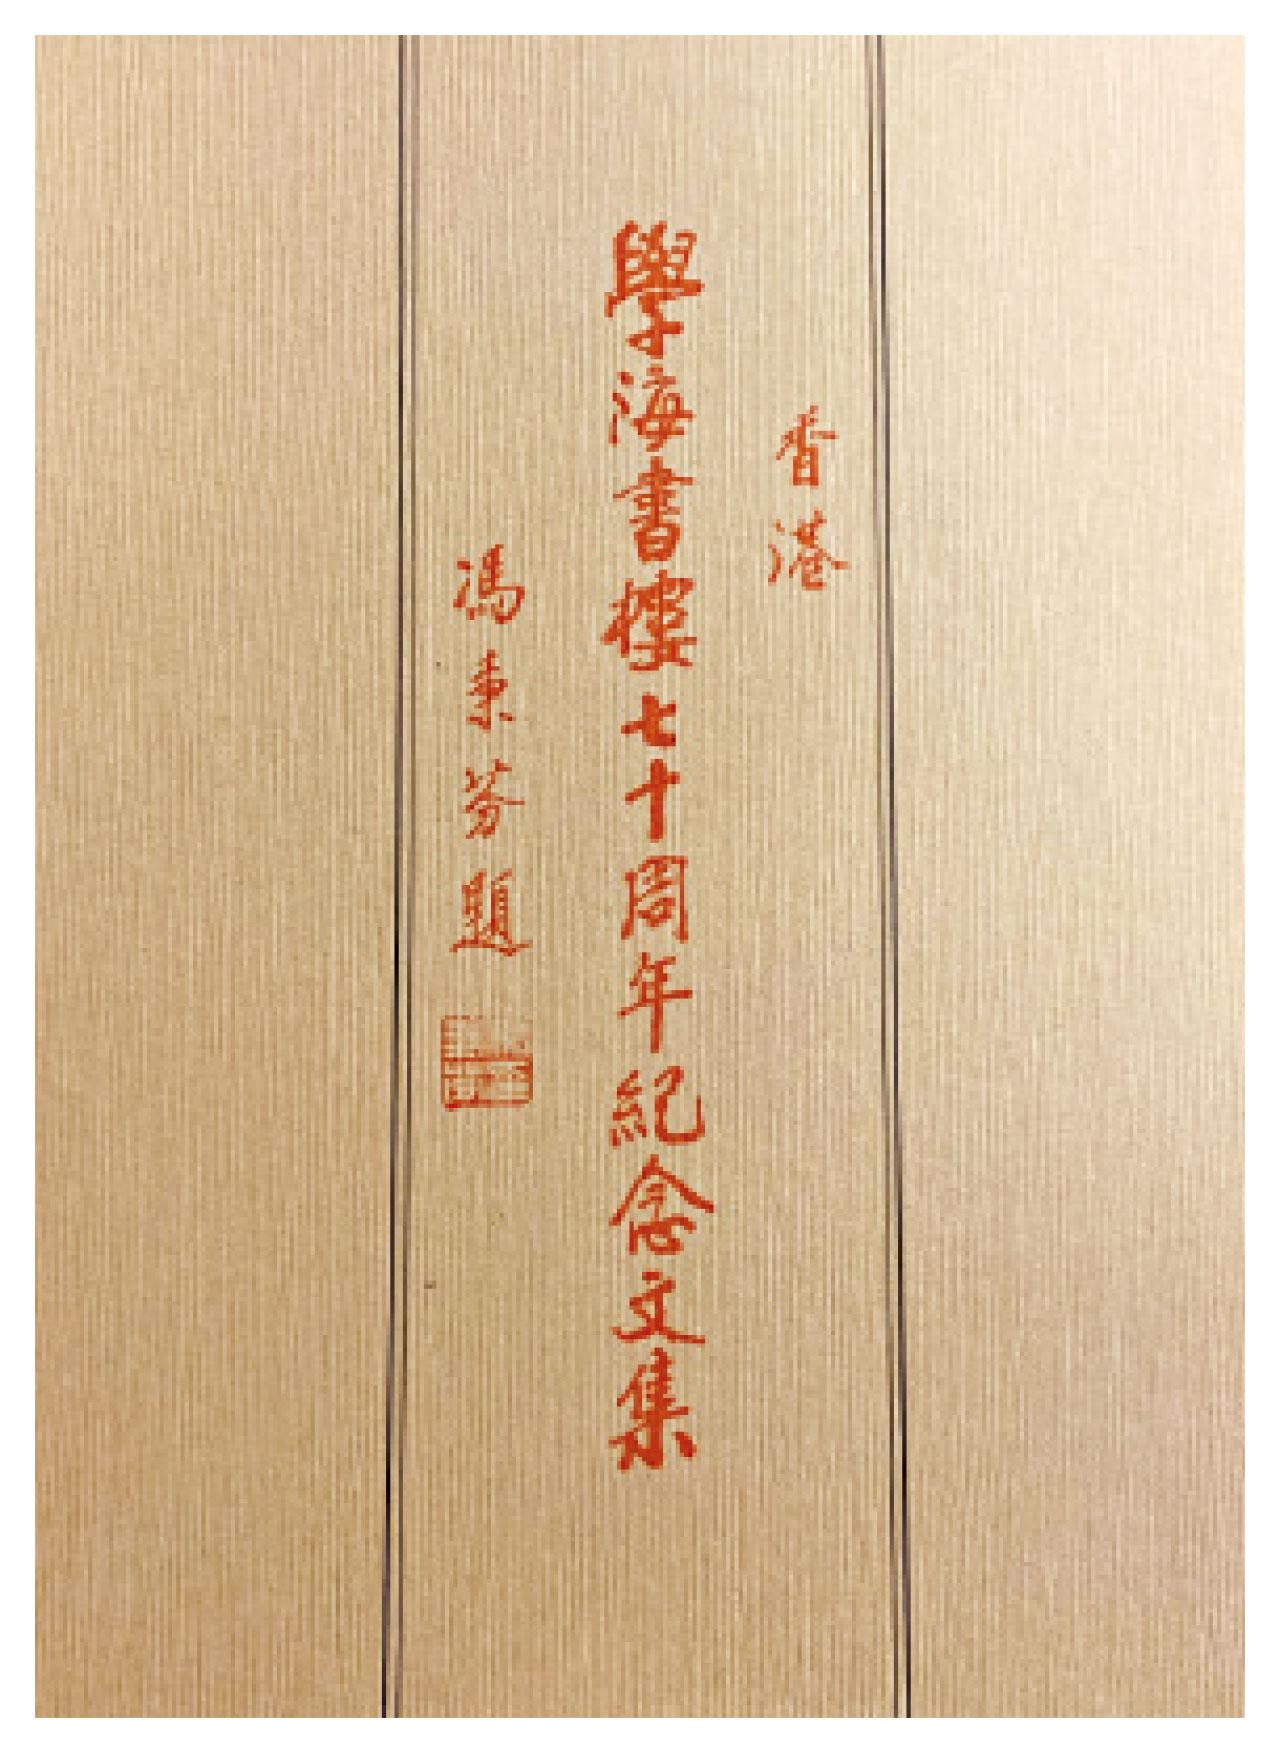 香港
學海書樓七十周年紀念文集
馮秉芬題